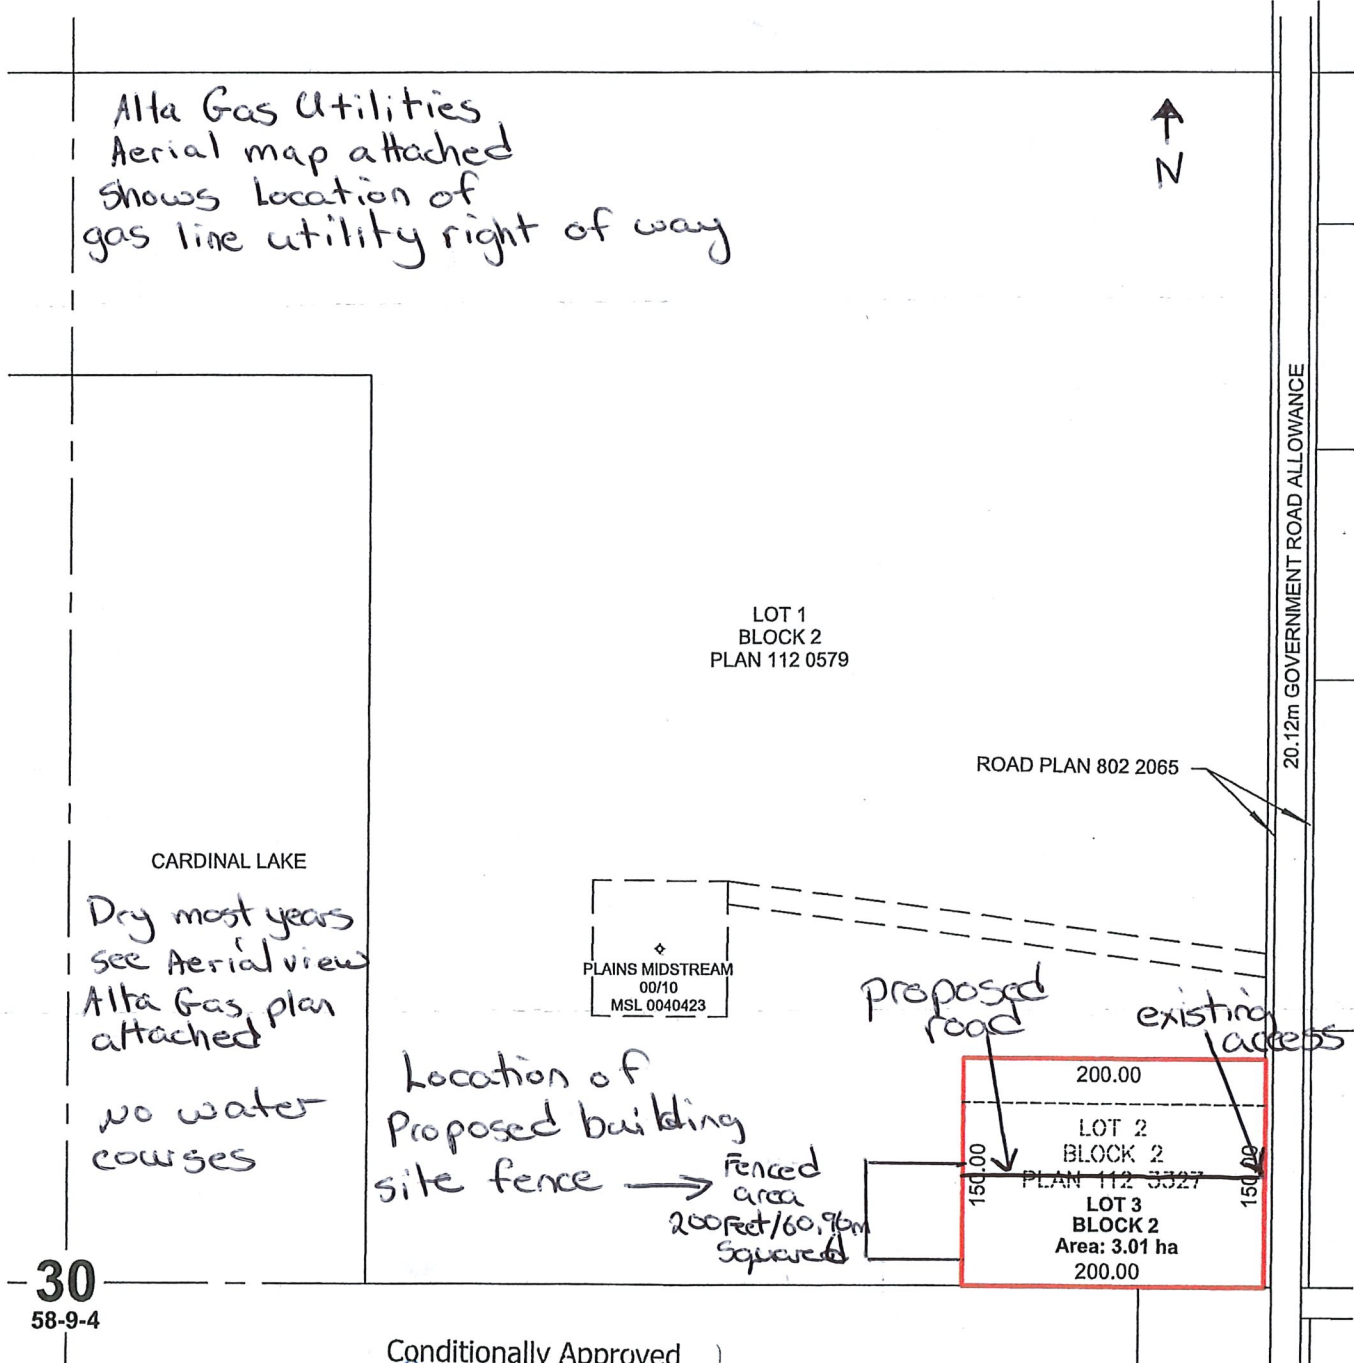 Alta Gas Utilities
Aerial map attached
shows Location of
gas line utility right of way
N
20.12m GOVERNMENT ROAD ALLOWANCE
LOT 1
BLOCK 2
PLAN 112 0579
ROAD PLAN 802 2065
CARDINAL LAKE
Dry most years
see Aerial view
Alta Gas plan
attached
No water
courses
PLAINS MIDSTREAM
00/10
MSL 0040423
proposed
road
existing
access
Location of
Proposed building
site fence
Fenced
area
200feet/60.96m
Squared
200.00
LOT 2
BLOCK 2
PLAN 112 3327
150.00
150.00
LOT 3
BLOCK 2
Area: 3.01 ha
200.00
30
58-9-4
Conditionally Approved )